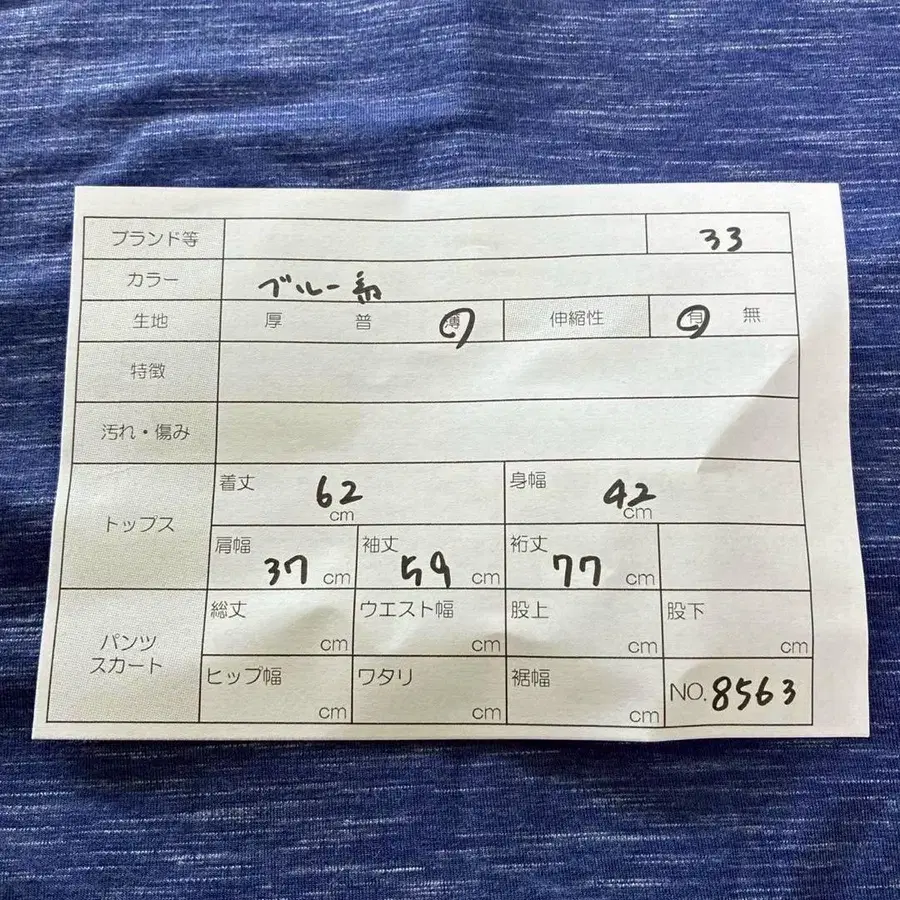 ブランド等 33
カラー ブルー系
生地 厚 普 薄 伸縮性 有 無
特徴
汚れ・傷み
トップス
着丈 62 cm 身幅 42 cm
肩幅 37 cm 袖丈 59 cm 裄丈 77 cm
パンツ
スカート
総丈 cm ウエスト幅 cm 股上 cm 股下 cm
ヒップ幅 cm ワタリ cm 裾幅 cm NO. 8563